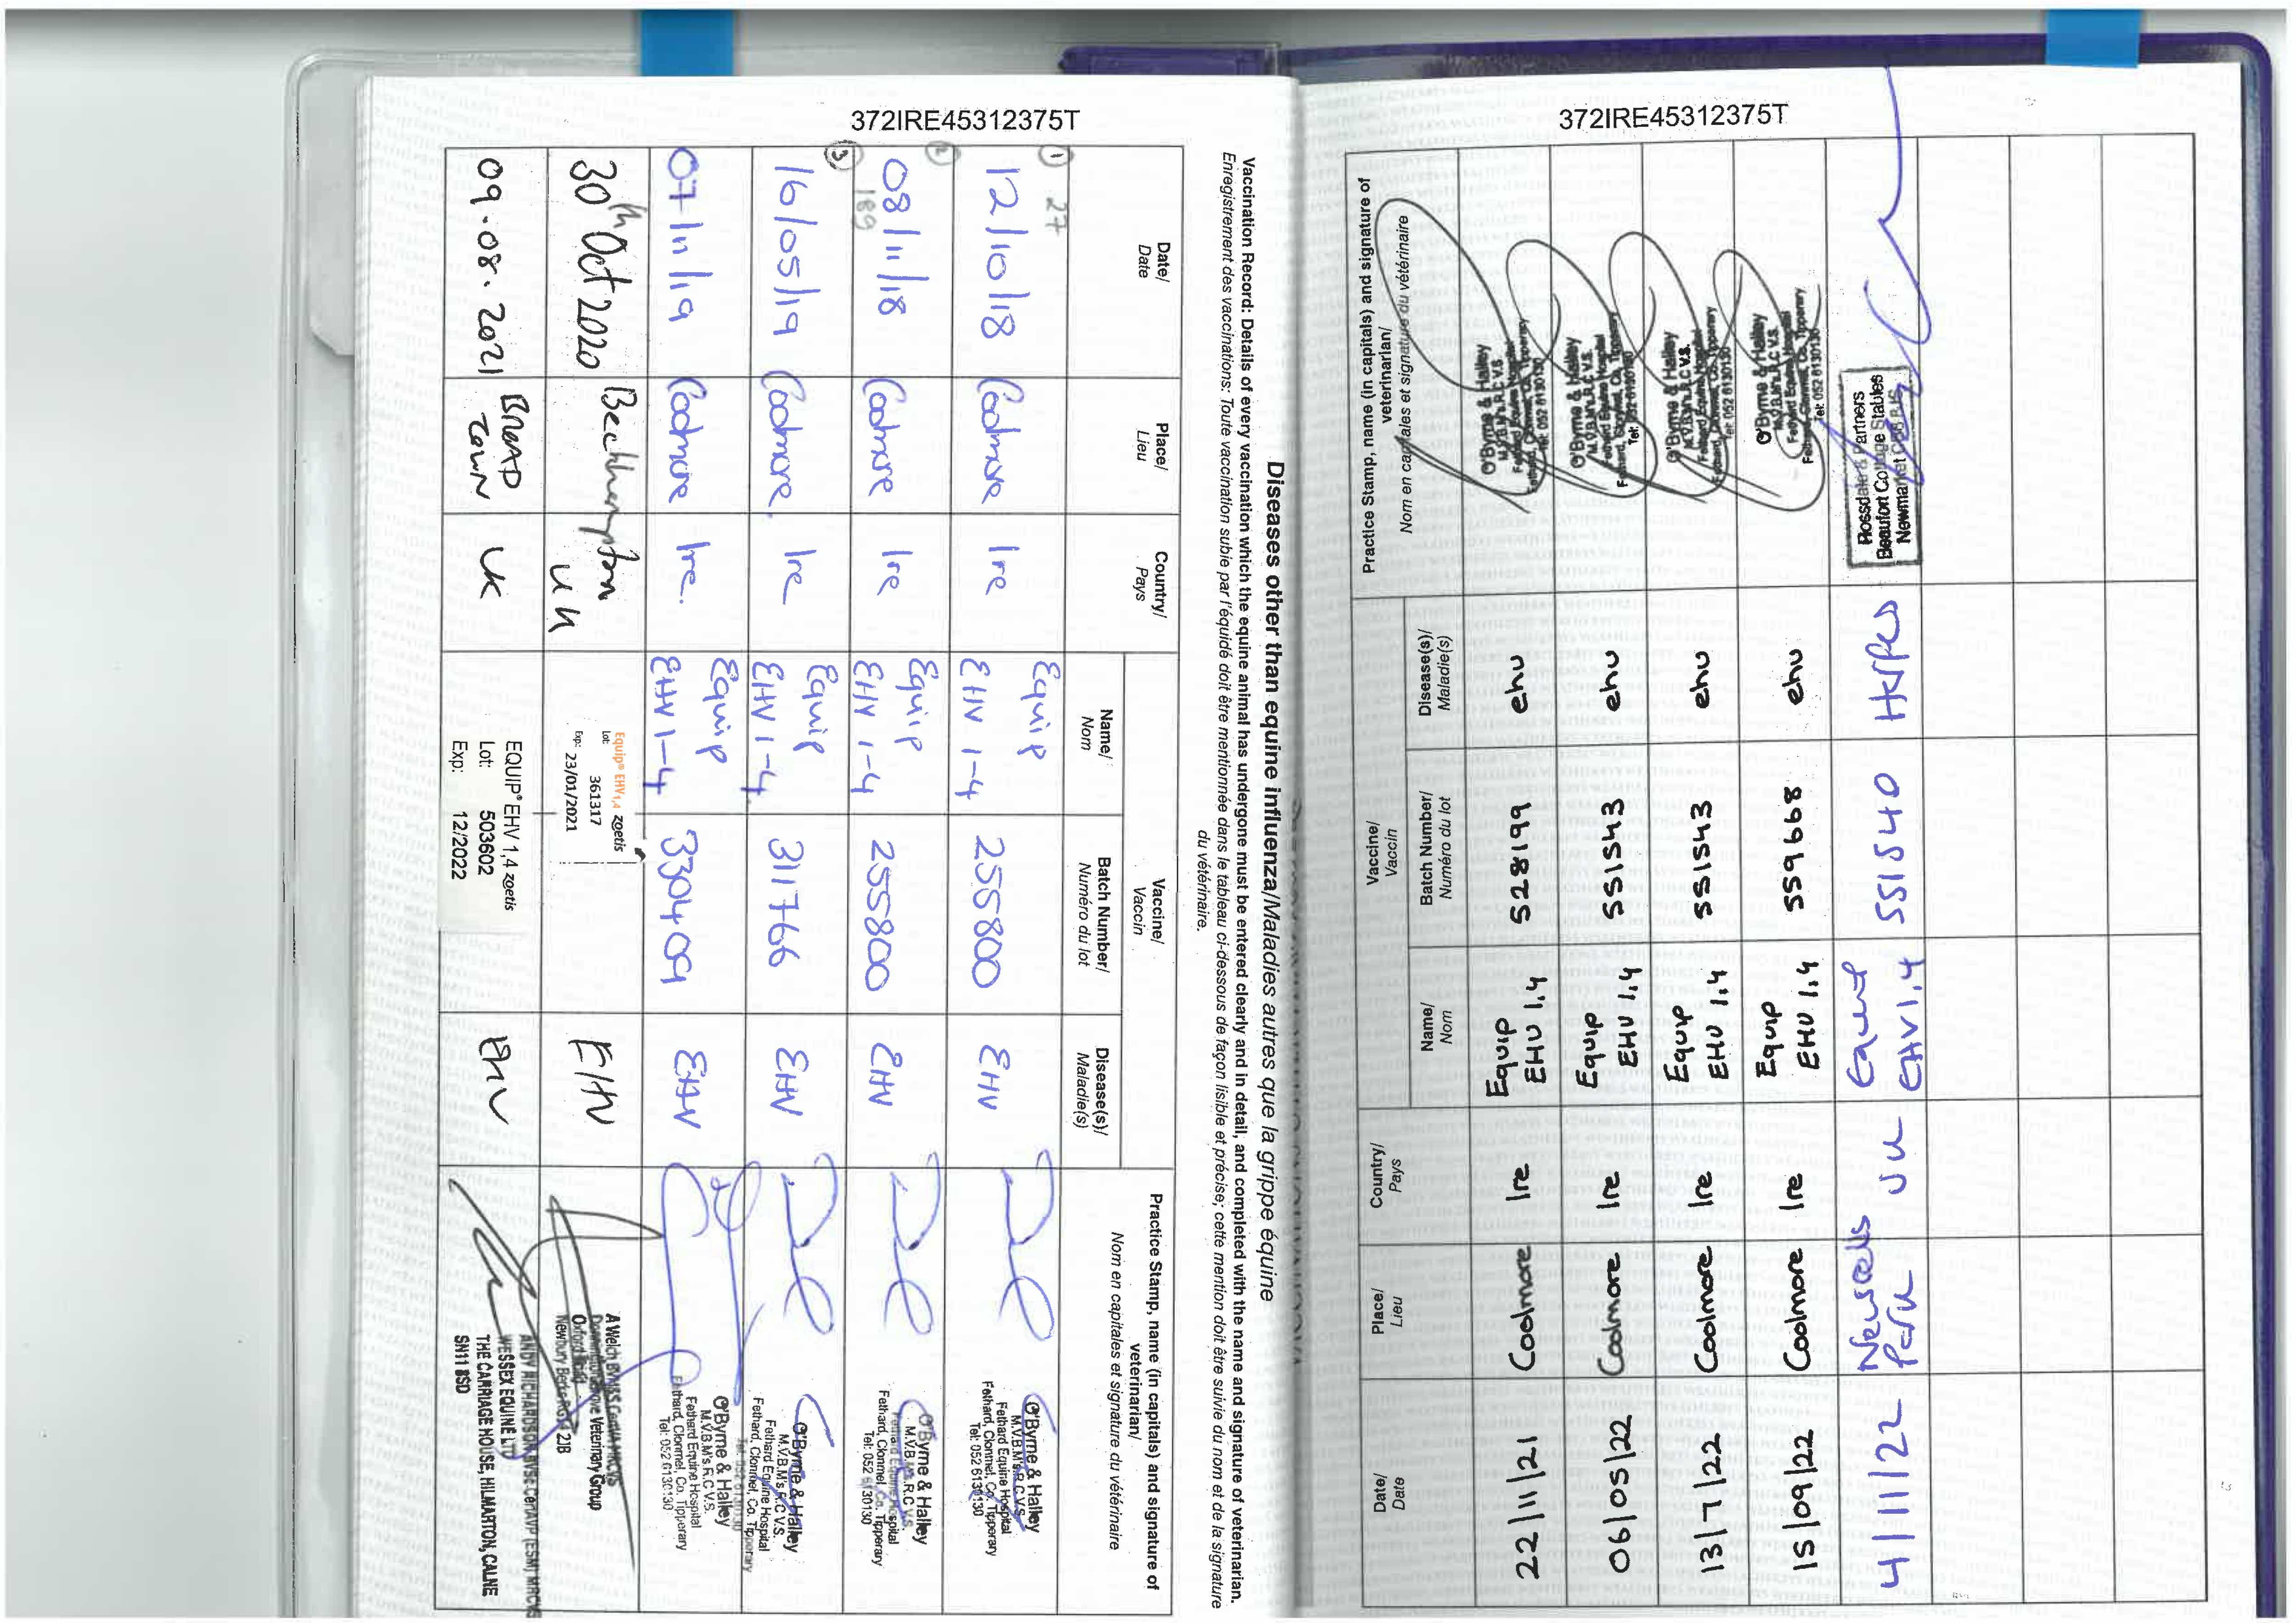 372IRE45312375T
Diseases other than equine influenza/Maladies autres que la grippe équine
Vaccination Record: Details of every vaccination which the equine animal has undergone must be entered clearly and in detail, and completed with the name and signature of veterinarian.
Enregistrement des vaccinations: Toute vaccination subie par l'équidé doit être mentionnée dans le tableau ci-dessous de façon lisible et précise; cette mention doit être suivie du nom et de la signature
du vétérinaire.
Date/
Date
Place/
Lieu
Country/
Pays
Vaccine/
Vaccin
Name/
Nom
Batch Number/
Numéro du lot
Disease(s)/
Maladie(s)
Practice Stamp, name (in capitals) and signature of
veterinarian/
Nom en capitales et signature du vétérinaire
1 27
12/10/18 Coolmore Ire Equip
EHV 1-4 255800 EHV
O'Byrne & Halley
M.V.B.M's.R.C.V.S.
Fethard Equine Hospital
Fethard, Clonmel, Co. Tipperary
Tel: 052 6130130
2
08/11/18 Coolmore Ire Equip
EHV 1-4 255800 EHV
189
O'Byrne & Halley
M.V.B.M's.R.C.V.S.
Fethard Equine Hospital
Fethard, Clonmel, Co. Tipperary
Tel: 052 6130130
3
16/05/19 Coolmore. Ire Equip
EHV 1-4 311766 EHV
O'Byrne & Halley
M.V.B.M's R.C.V.S.
Fethard Equine Hospital
Fethard, Clonmel, Co. Tipperary
Tel: 052 6130130
07/11/19 Coolmore Ire. Equip
EHV 1-4 330409 EHV
O'Byrne & Halley
M.V.B.M's.R.C.V.S.
Fethard Equine Hospital
Fethard, Clonmel, Co. Tipperary
Tel: 052 6130130
30th Oct 2020 Beckhampton UK
Equip® EHV1,4 zoetis
Lot: 361317
Exp: 23/01/2021
EHV
A Welch BVMSS CertVA MRCVS
Donnington Grove Veterinary Group
Oxford Road
Newbury Berks RG14 2JB
09.08.2021 BROAD
TOWN UK
EQUIP® EHV 1,4 zoetis
Lot: 503602
Exp: 12/2022
EHV
ANDY RICHARDSON BVSC CertAVP (ESM) MRCVS
WESSEX EQUINE LTD
THE CARRIAGE HOUSE, HILMARTON, CALNE
SN11 8SD
372IRE45312375T
Date/
Date
Place/
Lieu
Country/
Pays
Vaccine/
Vaccin
Name/
Nom
Batch Number/
Numéro du lot
Disease(s)/
Maladie(s)
Practice Stamp, name (in capitals) and signature of
veterinarian/
Nom en capitales et signature du vétérinaire
22/11/21 Coolmore Ire Equip
EHV 1,4 528199 ehv
O'Byrne & Halley
M.V.B.M's.R.C.V.S.
Fethard Equine Hospital
Fethard, Clonmel, Co. Tipperary
Tel: 052 6130130
06/05/22 Coolmore Ire Equip
EHV 1,4 551543 ehv
O'Byrne & Halley
M.V.B.M's.R.C.V.S.
Fethard Equine Hospital
Fethard, Clonmel, Co. Tipperary
Tel: 052 6130130
13/7/22 Coolmore Ire Equip
EHV 1,4 551543 ehv
O'Byrne & Halley
M.V.B.M's.R.C.V.S.
Fethard Equine Hospital
Fethard, Clonmel, Co. Tipperary
Tel: 052 6130130
15/09/22 Coolmore Ire Equip
EHV 1,4 559668 ehv
O'Byrne & Halley
M.V.B.M's.R.C.V.S.
Fethard Equine Hospital
Fethard, Clonmel, Co. Tipperary
Tel: 052 6130130
4/11/22 Newsells
Park UK
EHV1,4 551540 Herpes
Rossdale & Partners
Beaufort Cottage Stables
Newmarket CB8 8JS